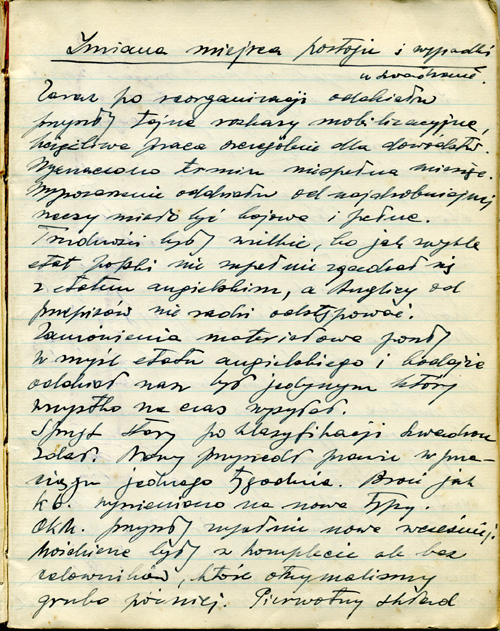 Zmiana miejsca postoju i wypadki
w szwadronie.
Zaraz po reorganizacji oddziału
przyszły tajne rozkazy mobilizacyjne,
praca szczególnie dla dowództw.
Wyznaczono termin niespełna miesiąc.
Wyposażenie oddziału od najdrobniejszej
rzeczy miało być bojowe i pełne.
Trudności były wielkie, bo jak zwykle
etat polski nie zupełnie zgadzał się
z etatem angielskim, a Anglicy od
przepisów nie radzi odstępować.
Zamówienia materiałowe poszły
w myśl etatu angielskiego i bodajże
oddział nasz był jedynym który
wszystko na czas wysłał.
Sprzęt stary po klasyfikacji szwadron
zdał. Nowy przyszedł prawie w prze-
ciągu jednego tygodnia. Broń jak
k b. wymieniono na nowe typy.
Ckm. przyszły zupełnie nowe wcześniej.
Moździerze były w komplecie ale bez
celowników, które otrzymaliśmy
grubo później. Pierwotny skład